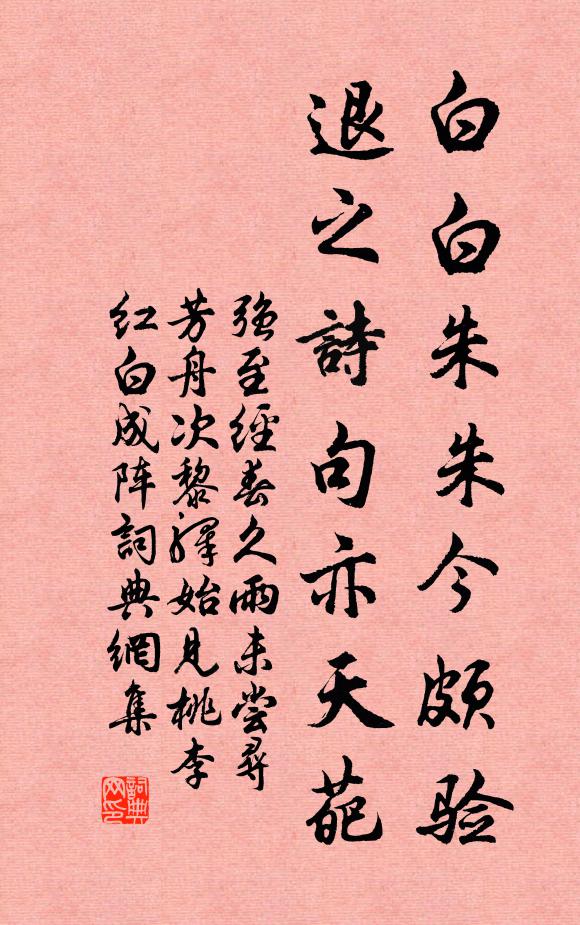 白白朱朱今頗验
退之詩句亦天葩
强至經春久雨未尝尋
芳舟次黎驛始見桃李
红白成阵詞典網集
詞典
网印